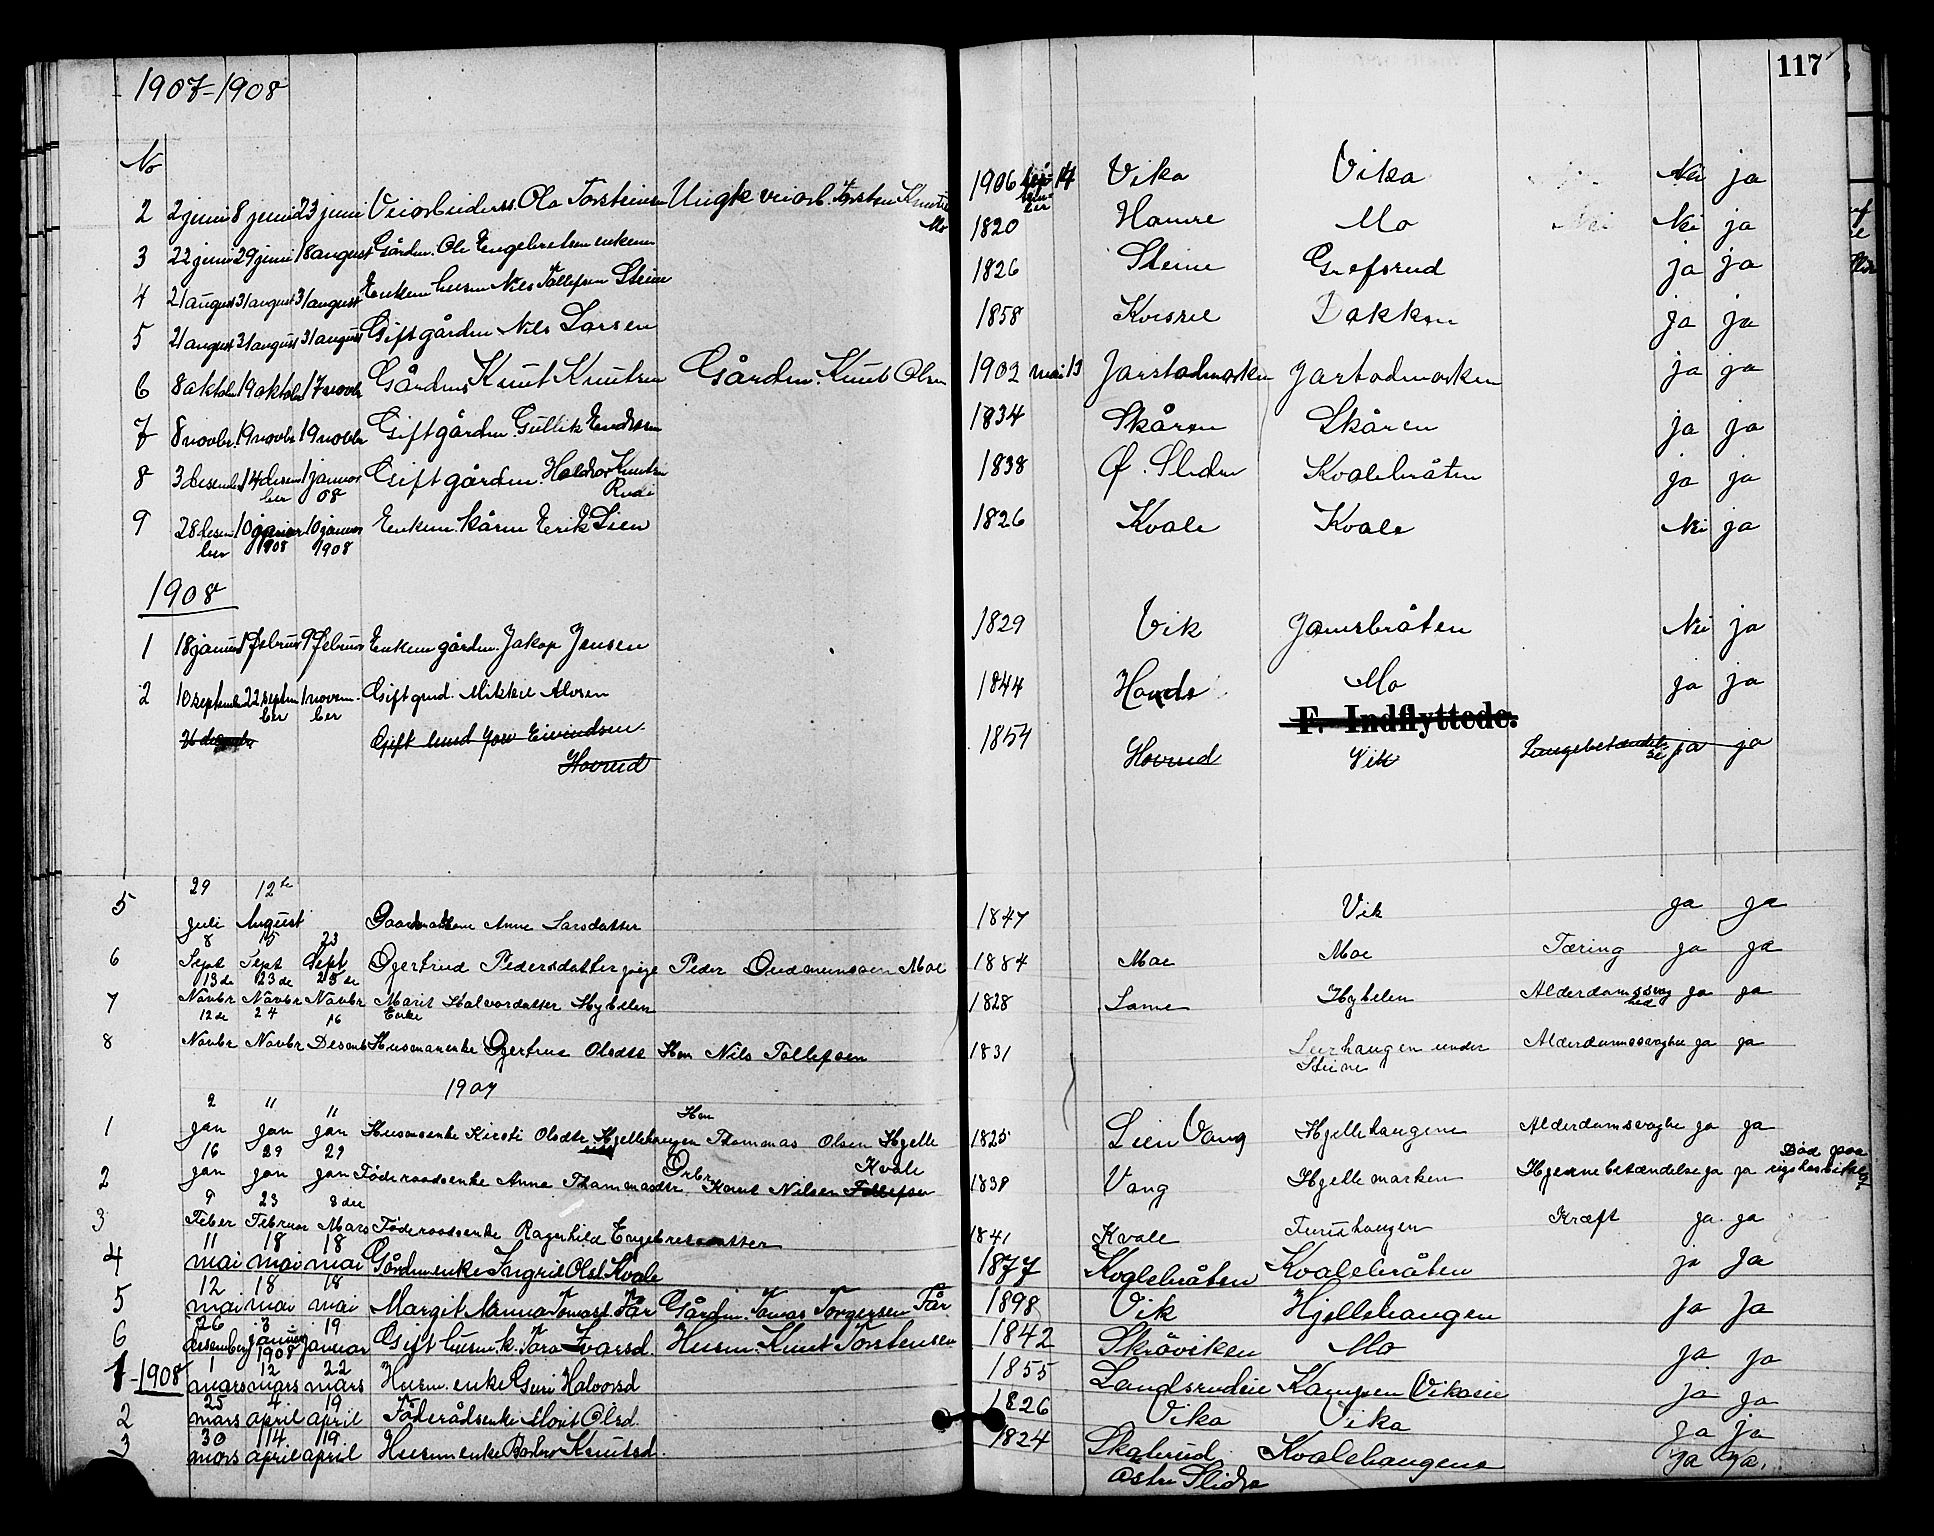 1907-1908
117
No
2 2 juni 8 juni 23 juni Veiarbeiderss. Ola Torsteinsen Ungk veiarb. Torsten Knutsen Mo 1906 14 Vika Vika Nei ja
3 22 juni 29 juni 18 august Gården. Ole Engebretsen enkem 1820 Hamre Mo Nei Nei ja
4 21 august 31 august 31 august Enkem husm Nils Tollefsen Steine 1826 Steine Grefsrud ja ja
5 21 august 31 august 31 august Gift gården Nils Larsen 1858 Kvisne Bakken ja ja
6 8 oktobr 19 oktobr 17 novbr Gårdms Knut Knutsen Gårdm. Knut Olsen 1902 mai 13 Jarstadmarken Jartadmarken ja ja
7 8 novbr. 19 novbr 19 novbr Gift gården. Gullik Endresen 1834 Skåren Skåren ja ja
8 3 desember 14 desember 1 januar 08 Gift gården. Haldor Knutsen Rudi 1838 Ø. Slidre Kvalebråten ja ja
9 28 desember 10 januar 1908 10 januar 1908 Enkem. kårm Erik Lien 1826 Kvale Kvale Nei ja
1908
1 18 januar 1 februar 9 februar Enkem gården. Jakop Jensen 1829 Vik Jamsbråten Nei ja
2 10 september 22 september 1 november Gift grud. Mikkel Alvsen 1844 Hande Mo ja ja
F. Indflyttede.
Gift husd Jon Eivindsen Hovrud 1854 Hovrud Vik Lungebetændelse ja ja
5 29 juli 12te August Gaardmatkone Anne Larsdatter 1847 Vik ja ja
6 8 Sept 15 Sept 23 Sept Gjertrud Pedersdatter pige Peder Gudmundsen Moe 1884 Moe Moe Tæring ja ja
7 13de Novbr 23de Novbr 25de Novbr Marit Halvordatter Hybelen Enke 1828 Lome Hybelen Alderdomssvaghed ja ja
8 12de Novbr 24 Novbr 16 Desemb Husmanenke Gjertrud Olsdtr Hm Nils Tollefsen 1831 Leirhaugen under Steine Alderdomssvaghe ja ja
1907
1 2 jan 11 jan 11 jan Husmsenke Kirsti Olsdtr Hjellehaugen Hm Thommas Olsen Hjelle 1825 Lien Vang Hjellehaugene Alderdomsvaghe ja ja
2 16 jan 29 jan 29 jan Föderaadsenke Anne Thommasdtr Knut Nilsen Kvale Tollefsen 1838 Vang Hjellemarken Hjernebetændelse ja ja Død paa
3 9 Feber 23 Februar 8de Mars Föderaadsenke Ragnhild Engebretsdatter 1841 Kvale Furuhaugen Kræft ja ja
4 11 mai 18 mai 18 mai Gårdmenke Ingrid Olsd. Kvale 1877 Kvalebråten Kvalebråten ja ja
5 12 mai 18 mai 18 mai Margit Nanna Tomasd. Får Gårdm. Tomas Torgersen Får 1898 Vik Hjellehaugen ja ja
6 26 desember 3 januar 1908 19 januar Gift husm. k. Tora Ivarsd. Husm. Knut Torstensen 1842 Skråviken Mo ja ja
1-1908 1 mars 12 mars 22 mars Husm. enke Guri Halvorsd 1855 Landsrudeie Kampen Vikaeie ja ja
2 25 mars 4 april 19 april Föderådsenke Marit Olsd. 1826 Vika Vika ja ja
3 30 mars 14 april 19 april Husmenke Barbro Knutsd. 1824 Skaterud Østre Slidre Kvalehaugene ja ja.